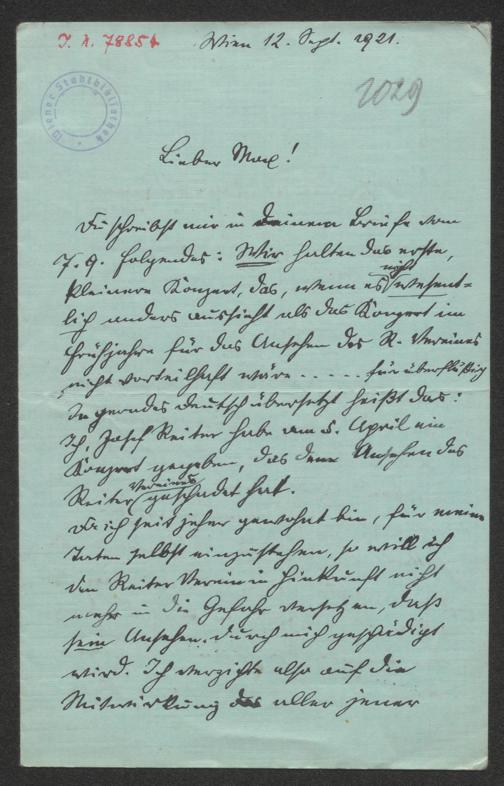 J. N. 78854
Wien 12. Sept. 1921.
1029
Wiener Stadtbibliothek
Lieber Max!
Du schreibst mir in deinem Briefe vom
7. 9. folgendes: Wir halten das erste,
kleinere Konzert, das, wenn es nicht wesent-
lich anders aussieht als das Konzert im
Frühjahre für das Ansehen des R. Vereines
nicht vorteilhaft wäre ..... für überflüßig
In gerades Deutsch übersetzt heißt das:
Ich, Josef Reiter habe am 5. April ein
Konzert gegeben, das dem Ansehen des
Reiter Vereines geschadet hat.
Da ich seit jeher gewohnt bin, für meine
Taten selbst einzustehen, so will ich
den Reiter Verein in Hinkunft nicht
mehr in die Gefahr versetzen, daß
sein Ansehen durch mich geschädigt
wird. Ich verzichte also auf die
Mitwirkung aller jener